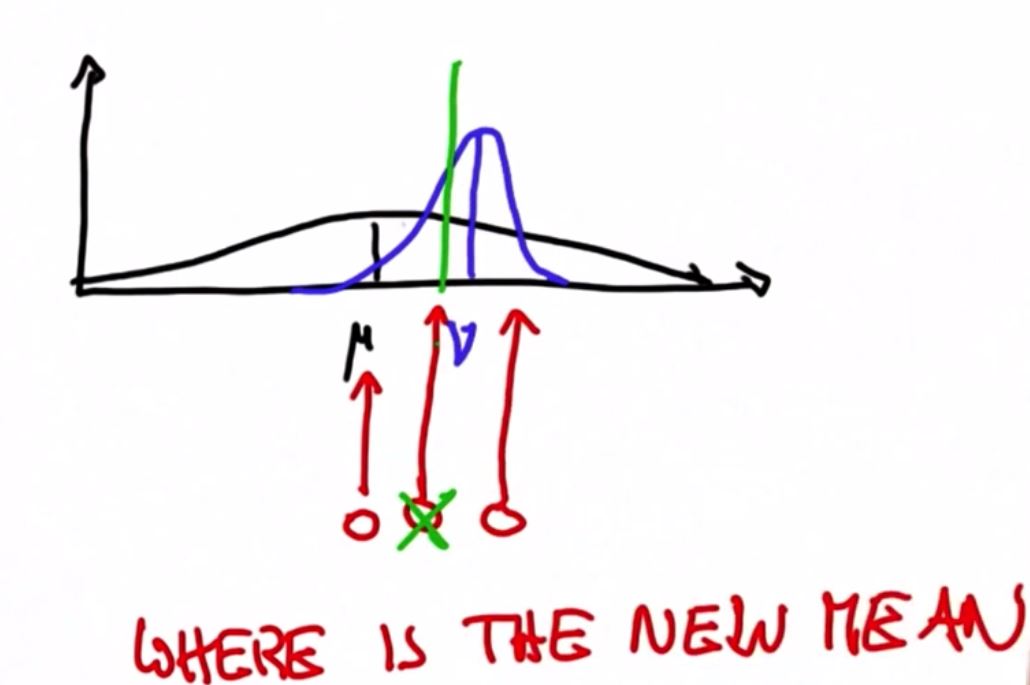 μ ν
WHERE IS THE NEW MEAN